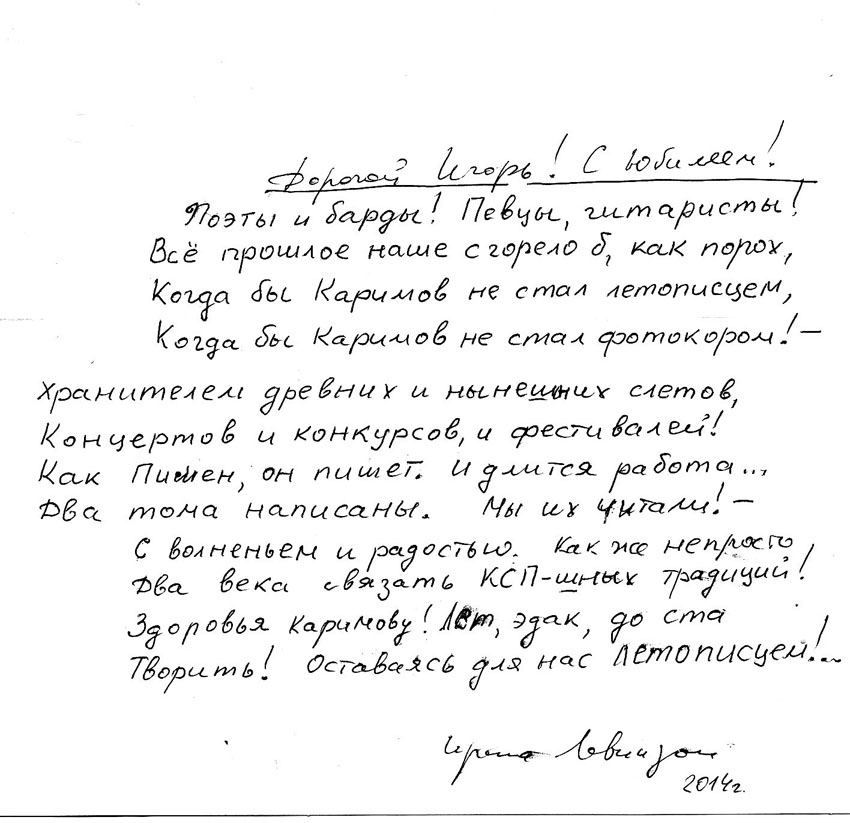 Дорогой Игорь! С юбилеем!
Поэты и барды! Певцы, гитаристы!
Всё прошлое наше сгорело б, как порох,
Когда бы Каримов не стал летописцем,
Когда бы Каримов не стал фотокором! —
Хранителем древних и нынешних слетов,
Концертов и конкурсов, и фестивалей!
Как Пимен, он пишет. И длится работа...
Два тома написаны. Мы их читали! —
С волненьем и радостью. Как же непросто
Два века связать КСП-шных традиций!
Здоровья Каримову! Лет, эдак, до ста
Творить! Оставаясь для нас летописцем!...
Ирина Левинзон
2014г.